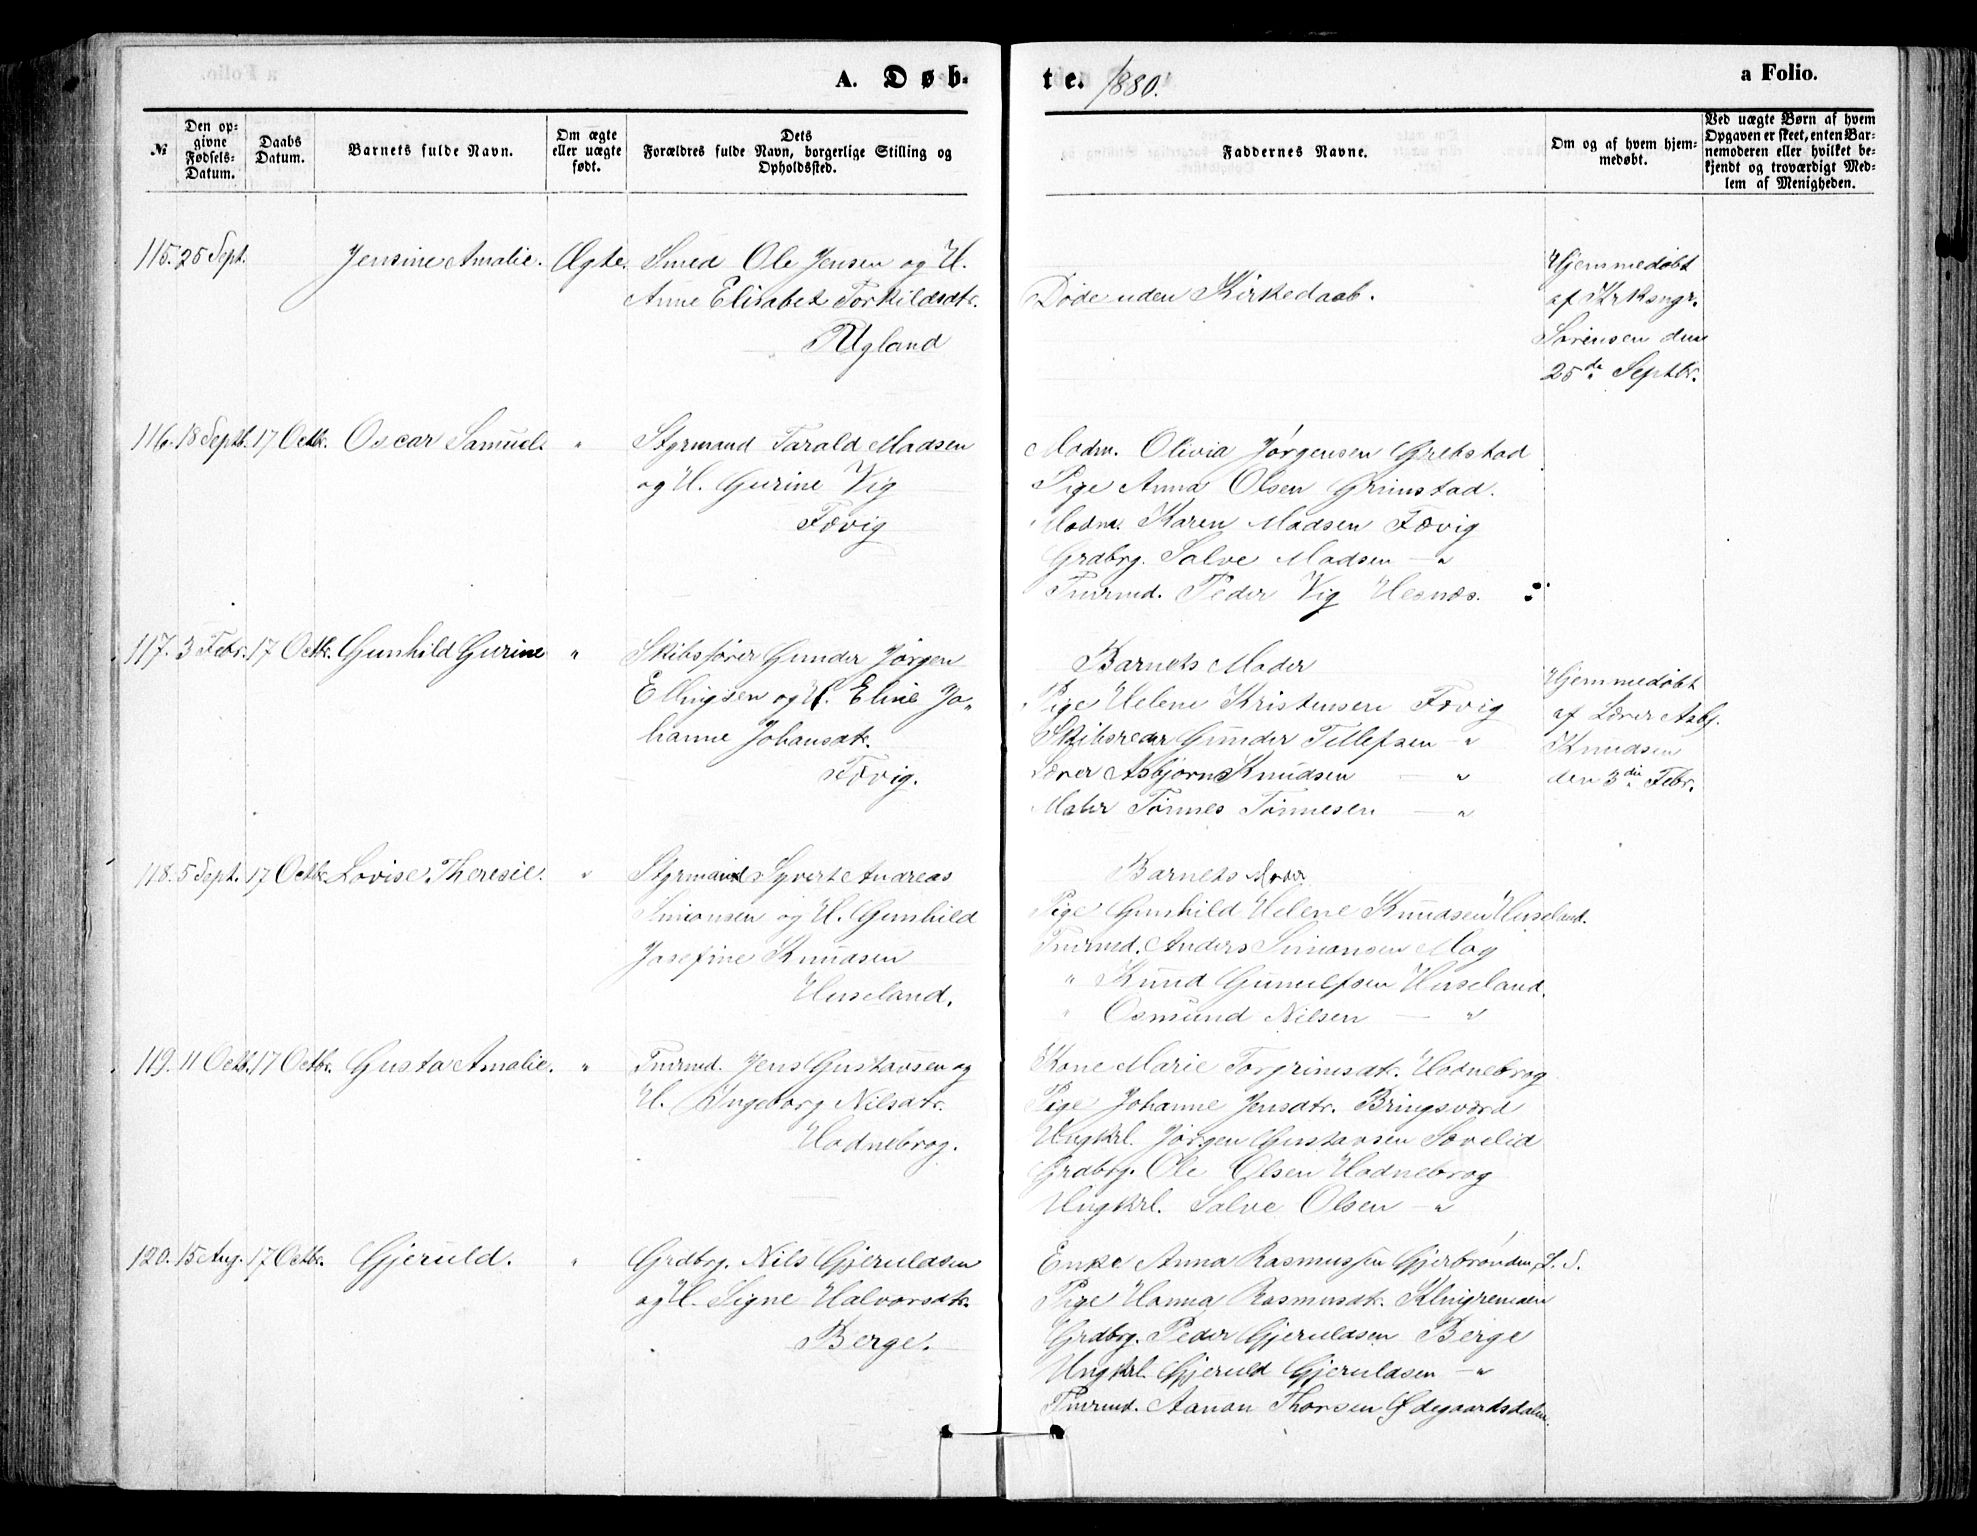 A. Døb-
te. 1880.
a Folio.
№
Den op-
givne
Fødsels-
Datum.
Daabs
Datum.
Barnets fulde Navn.
Om ægte
eller uægte
født.
Dets
Forældres fulde Navn, borgerlige Stilling og
Opholdssted.
Faddernes Navne.
Om og af hvem hjem-
medøbt.
Ved uægte Børn af hvem
Opgaven er skeet, enten Bar-
nemoderen eller hvilket be-
kjendt og troværdigt Med-
lem af Menigheden.
115. 25 Sept. Jensine Amalie. Ægte. Smed Ole Jensen og H.
Anne Elisabet Torkildsdtr.
Ugland
Døde uden Kirkedaab.
Hjemmedøbt
af Kirksngr.
Sørensen den
25de Septbr.
116. 18 Septb. 17 Octb. Oscar Samuel. " Styrmand Tarald Madsen
og H. Gurine Vig
Fævig
Madm. Olivia Jørgensen Grebstad
Pige Anna Olsen Grimstad.
Madm. Karen Madsen Fævig
Grdbrg. Salve Madsen — "
Tmrmd. Peder Vig Hesnæs.
117. 3 Febr. 17 Octb. Gunhild Gurine " Skibsfører Gunder Jørgen
Ellingsen og H. Eline Jo-
hanne Johansdtr.
Fævig.
Barnets Moder
Pige Helene Kristensen Fævig
Skibsreder Gunder Tellefsen — "
Lærer Asbjørn Knudsen — "
Maler Tønnes Tønnesen — "
Hjemmedøbt
af Lærer Asbj.
Knudsen
den 3die Febr.
118. 5 Sept. 17 Octb. Lovise Theresie. " Styrmand Syvert Andreas
Simonsen og H. Gunhild
Josefine Knudsen
Huseland.
Barnets Moder
Pige Gunhild Helene Knudsen Huseland.
Tmrmd. Anders Simonsen Mog
" Knud Gunulfsen Huseland.
" Osmund Nilsen — "
119. 11 Octb. 17 Octbr. Gusta Amalie. " Tmrmd. Jens Gustavsen og
H. Ingeborg Nilsdtr.
Hodnebrog.
Kone Marie Torgrimsdtr. Hodnebrog
Pige Johanne Jensdtr. Bringsværd
Ungkrl. Jørgen Gustavsen Sævelid
Grdbrg. Ole Olsen Hodnebrog
Ungkrl. Salve Olsen — "
120. 15 Aug. 17 Octbr. Gjeruld. " Grdbrg. Nils Gjeruldsen
og H. Signe Halvorsdtr.
Berge.
Enke Anna Rasmussen Gjerbrønden, L. S.
Pige Hanna Rasmusdtr.
Grdbrg. Peder Gjeruldsen Berge
Ungkrl. Gjeruld Gjeruldsen — "
Tmrmd. Aanon Thorsen Ødegaardsdalen.